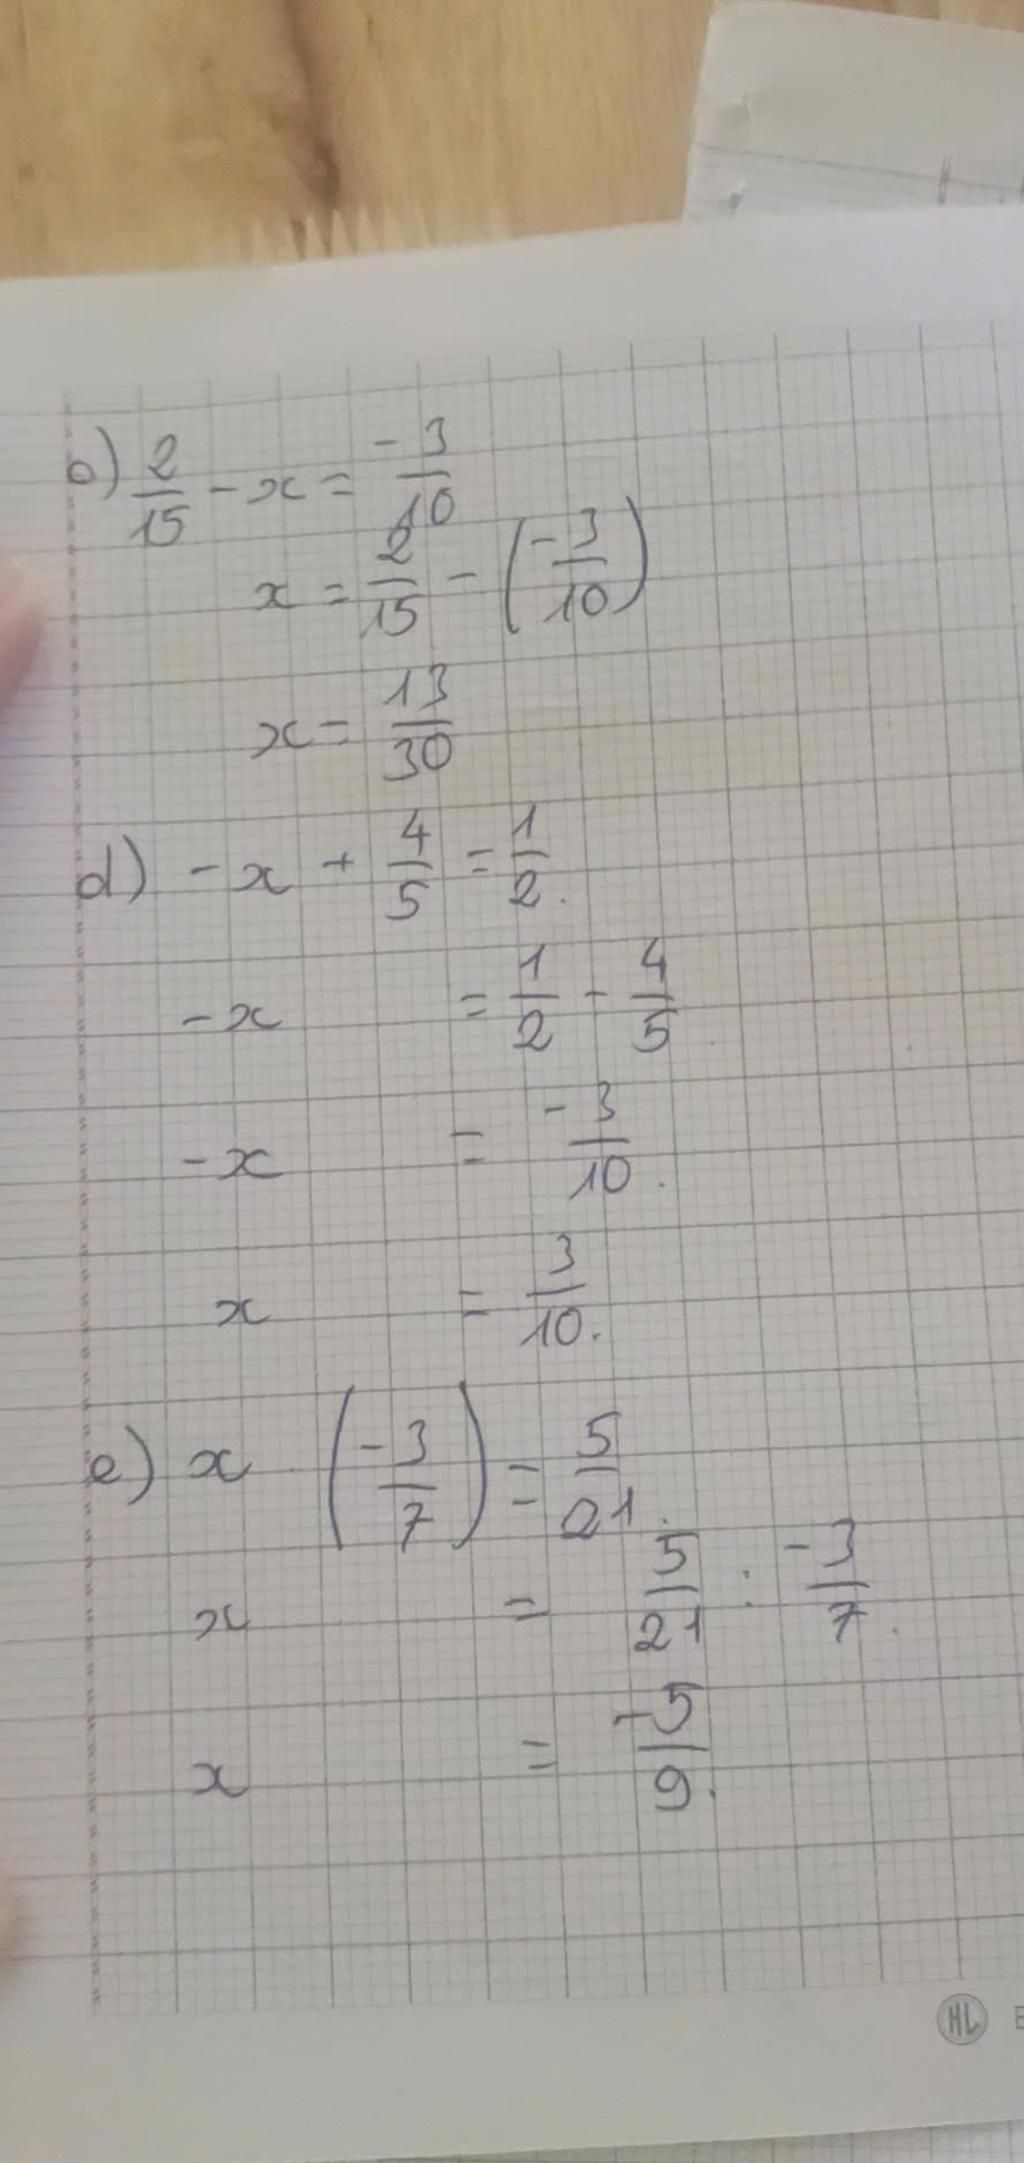 b) 2/15 - x = -3/10
x = 2/15 - (-3/10)
x = 13/30
d) -x + 4/5 = 1/2.
-x = 1/2 - 4/5
-x = -3/10.
x = 3/10.
e) x . (-3/7) = 5/21.
x = 5/21 : -3/7.
x = -5/9.
HL